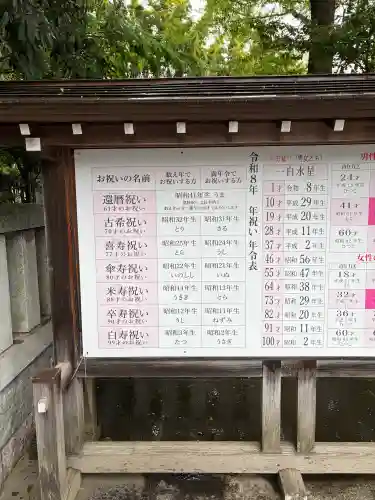 お祝いの名前 数え年でお祝いする方 満年令でお祝いする方
還暦祝い 昭和41年生 うま
古希祝い 70才のお祝い 昭和32年生 とり 昭和31年生 さる
喜寿祝い 77才のお祝い 昭和25年生 とら 昭和24年生 うし
傘寿祝い 80才のお祝い 昭和22年生 いのしし 昭和21年生
米寿祝い 88才のお祝い 昭和14年生 うさぎ 昭和13年生 とら
卒寿祝い 90才のお祝い 昭和12年生 うし 昭和11年生 ねずみ
白寿祝い 99才のお祝い 昭和3年生 たつ 昭和2年生 うさぎ
令和8年 年祝い年令表
一白水星
1才 令和 8年生
10才 平成 29年生
19才 平成 20年生
28才 平成 11年生
37才 平成 2年生
46才 昭和 56年生
55才 昭和 47年生
64才 昭和 38年生
73才 昭和 29年生
82才 昭和 20年生
91才 昭和 11年生
100才 昭和 2年生
24才
41才
60才
女性の
18才
32才
36才